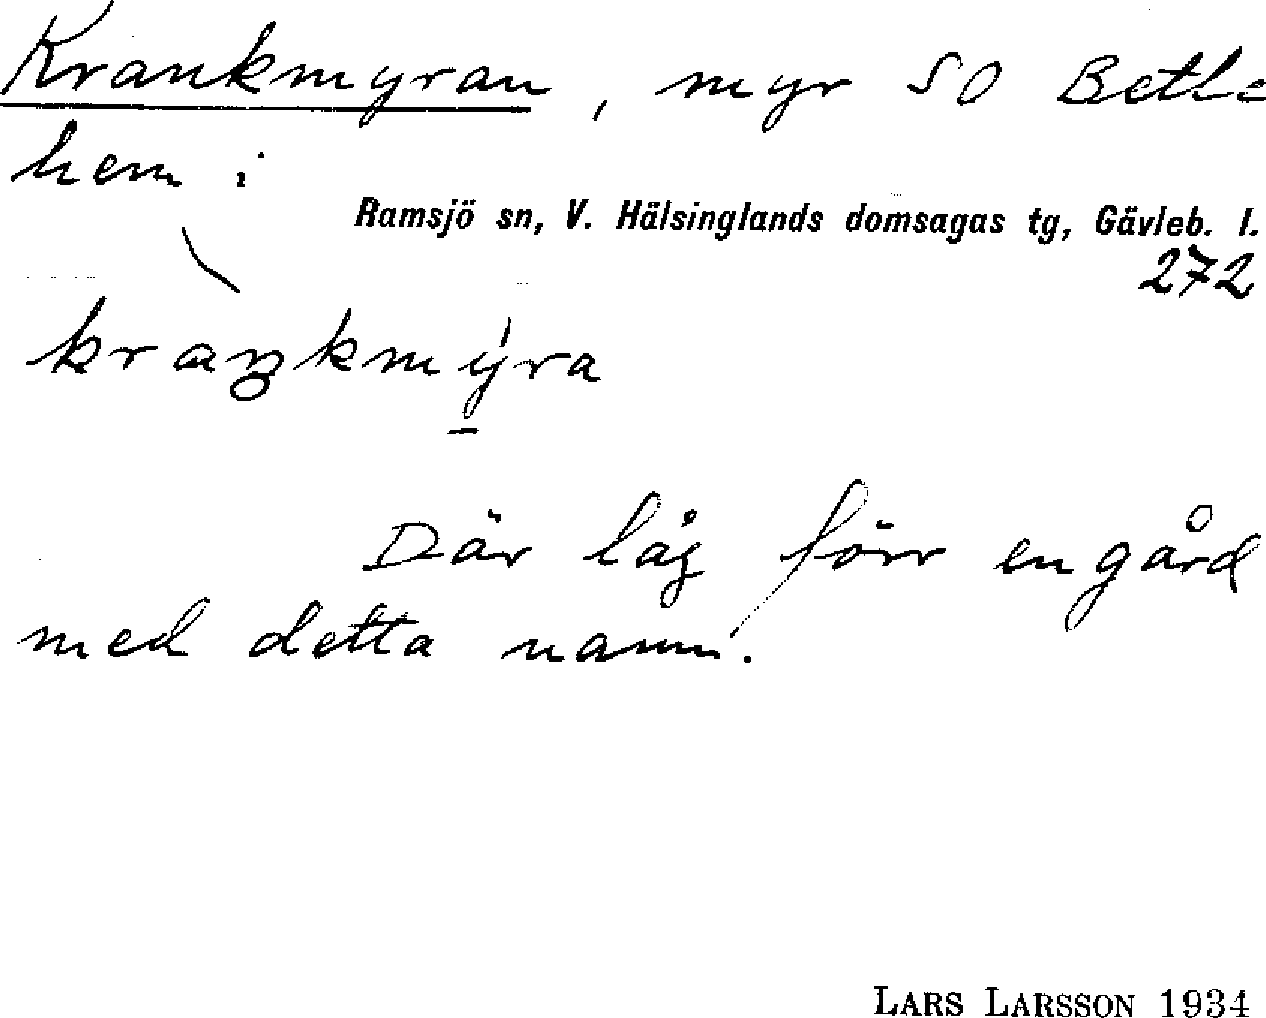 Krankmyran, myr SO Betle
hem i
Ramsjö sn, V. Hälsinglands domsagas tg, Gävleb. l.
272
kraŋkmýra
Där låg förr en gård
med detta namn.
LARS LARSSON 1934